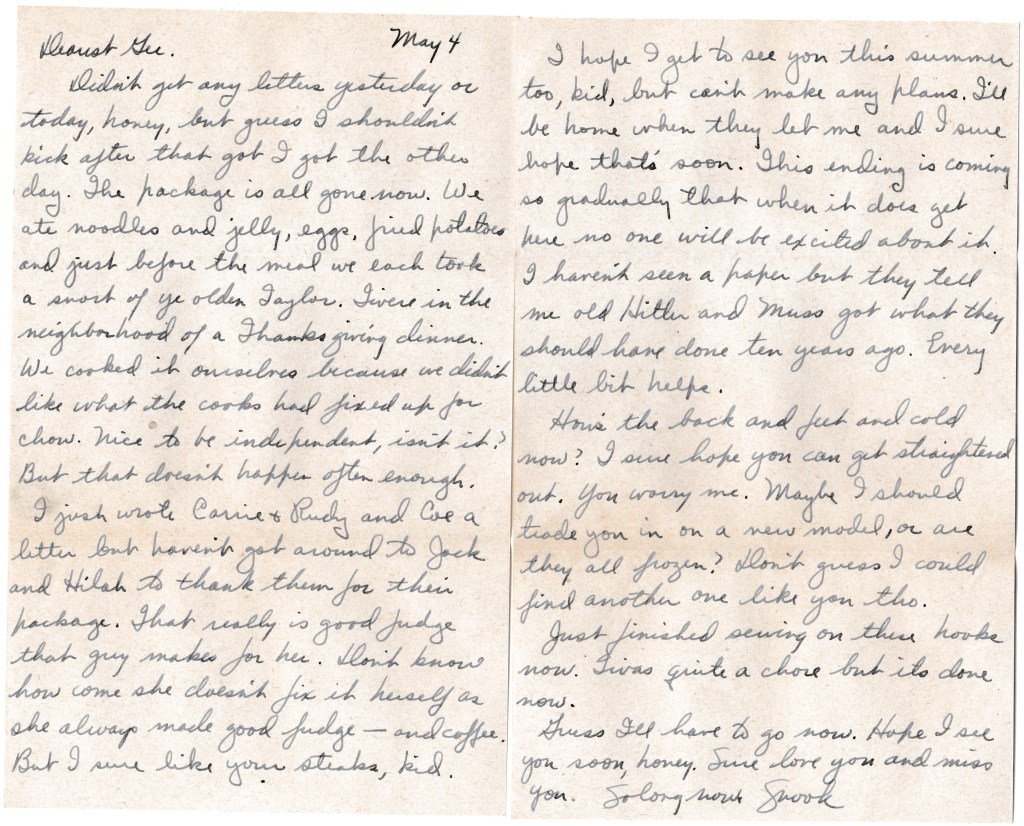 May 4
Dearest Gee.
Didn't get any letters yesterday or
today, honey, but guess I shouldn't
kick after that got I got the other
day. The package is all gone now. We
ate noodles and jelly, eggs, fried potatoes
and just before the meal we each took
a snort of ye olden Taylor. Twere in the
neighborhood of a Thanksgiving dinner.
We cooked it ourselves because we didn't
like what the cooks had fixed up for
chow. Nice to be independent, isn't it?
But that doesn't happen often enough.
I just wrote Carrie & Rudy and Eve a
letter but haven't got around to Jack
and Hilah to thank them for their
package. That really is good fudge
that guy makes for her. Don't know
how come she doesn't fix it herself as
she always made good fudge — and coffee.
But I sure like your steaks, kid.
I hope I get to see you this summer
too, kid, but can't make any plans. I'll
be home when they let me and I sure
hope that's soon. This ending is coming
so gradually that when it does get
here no one will be excited about it.
I haven't seen a paper but they tell
me old Hitler and Muss got what they
should have done ten years ago. Every
little bit helps.
How's the back and feet and cold
now? I sure hope you can get straightened
out. You worry me. Maybe I should
trade you in on a new model, or are
they all frozen? Don't guess I could
find another one like you tho.
Just finished sewing on these hooks
now. Twas quite a chore but its done
now.
Guess I'll have to go now. Hope I see
you soon, honey. Sure love you and miss
you. So long now Snook